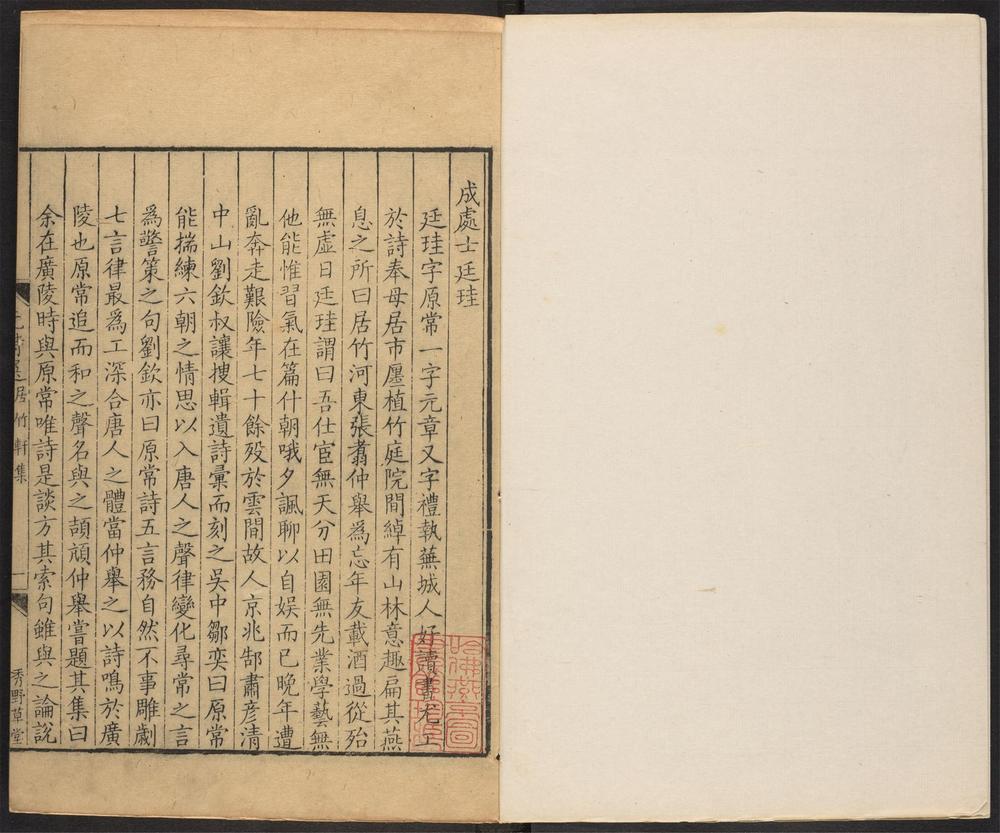 成處士廷珪
廷珪字原常一字元章又字禮執蕪城人好讀書尤工
於詩奉母居市廛植竹庭院間綽有山林意趣扁其燕
息之所曰居竹河東張翥仲舉為忘年友載酒過從殆
無虛日廷珪謂曰吾仕宦無天分田園無先業學藝無
他能惟習氣在篇什朝哦夕諷聊以自娛而已晚年遭
亂奔走艱險年七十餘歿於雲間故人京兆郜肅彥清
中山劉欽叔讓搜輯遺詩彙而刻之吳中鄒奕曰原常
能揣練六朝之情思以入唐人之聲律變化尋常之言
為警策之句劉欽亦曰原常詩五言務自然不事雕劌
七言律最為工深合唐人之體當仲舉之以詩鳴於廣
陵也原常追而和之聲名與之頡頏仲舉嘗題其集曰
余在廣陵時與原常唯詩是談方其索句雖與之論說
元詩選 居竹軒集 一 秀野草堂
哈佛燕京圖